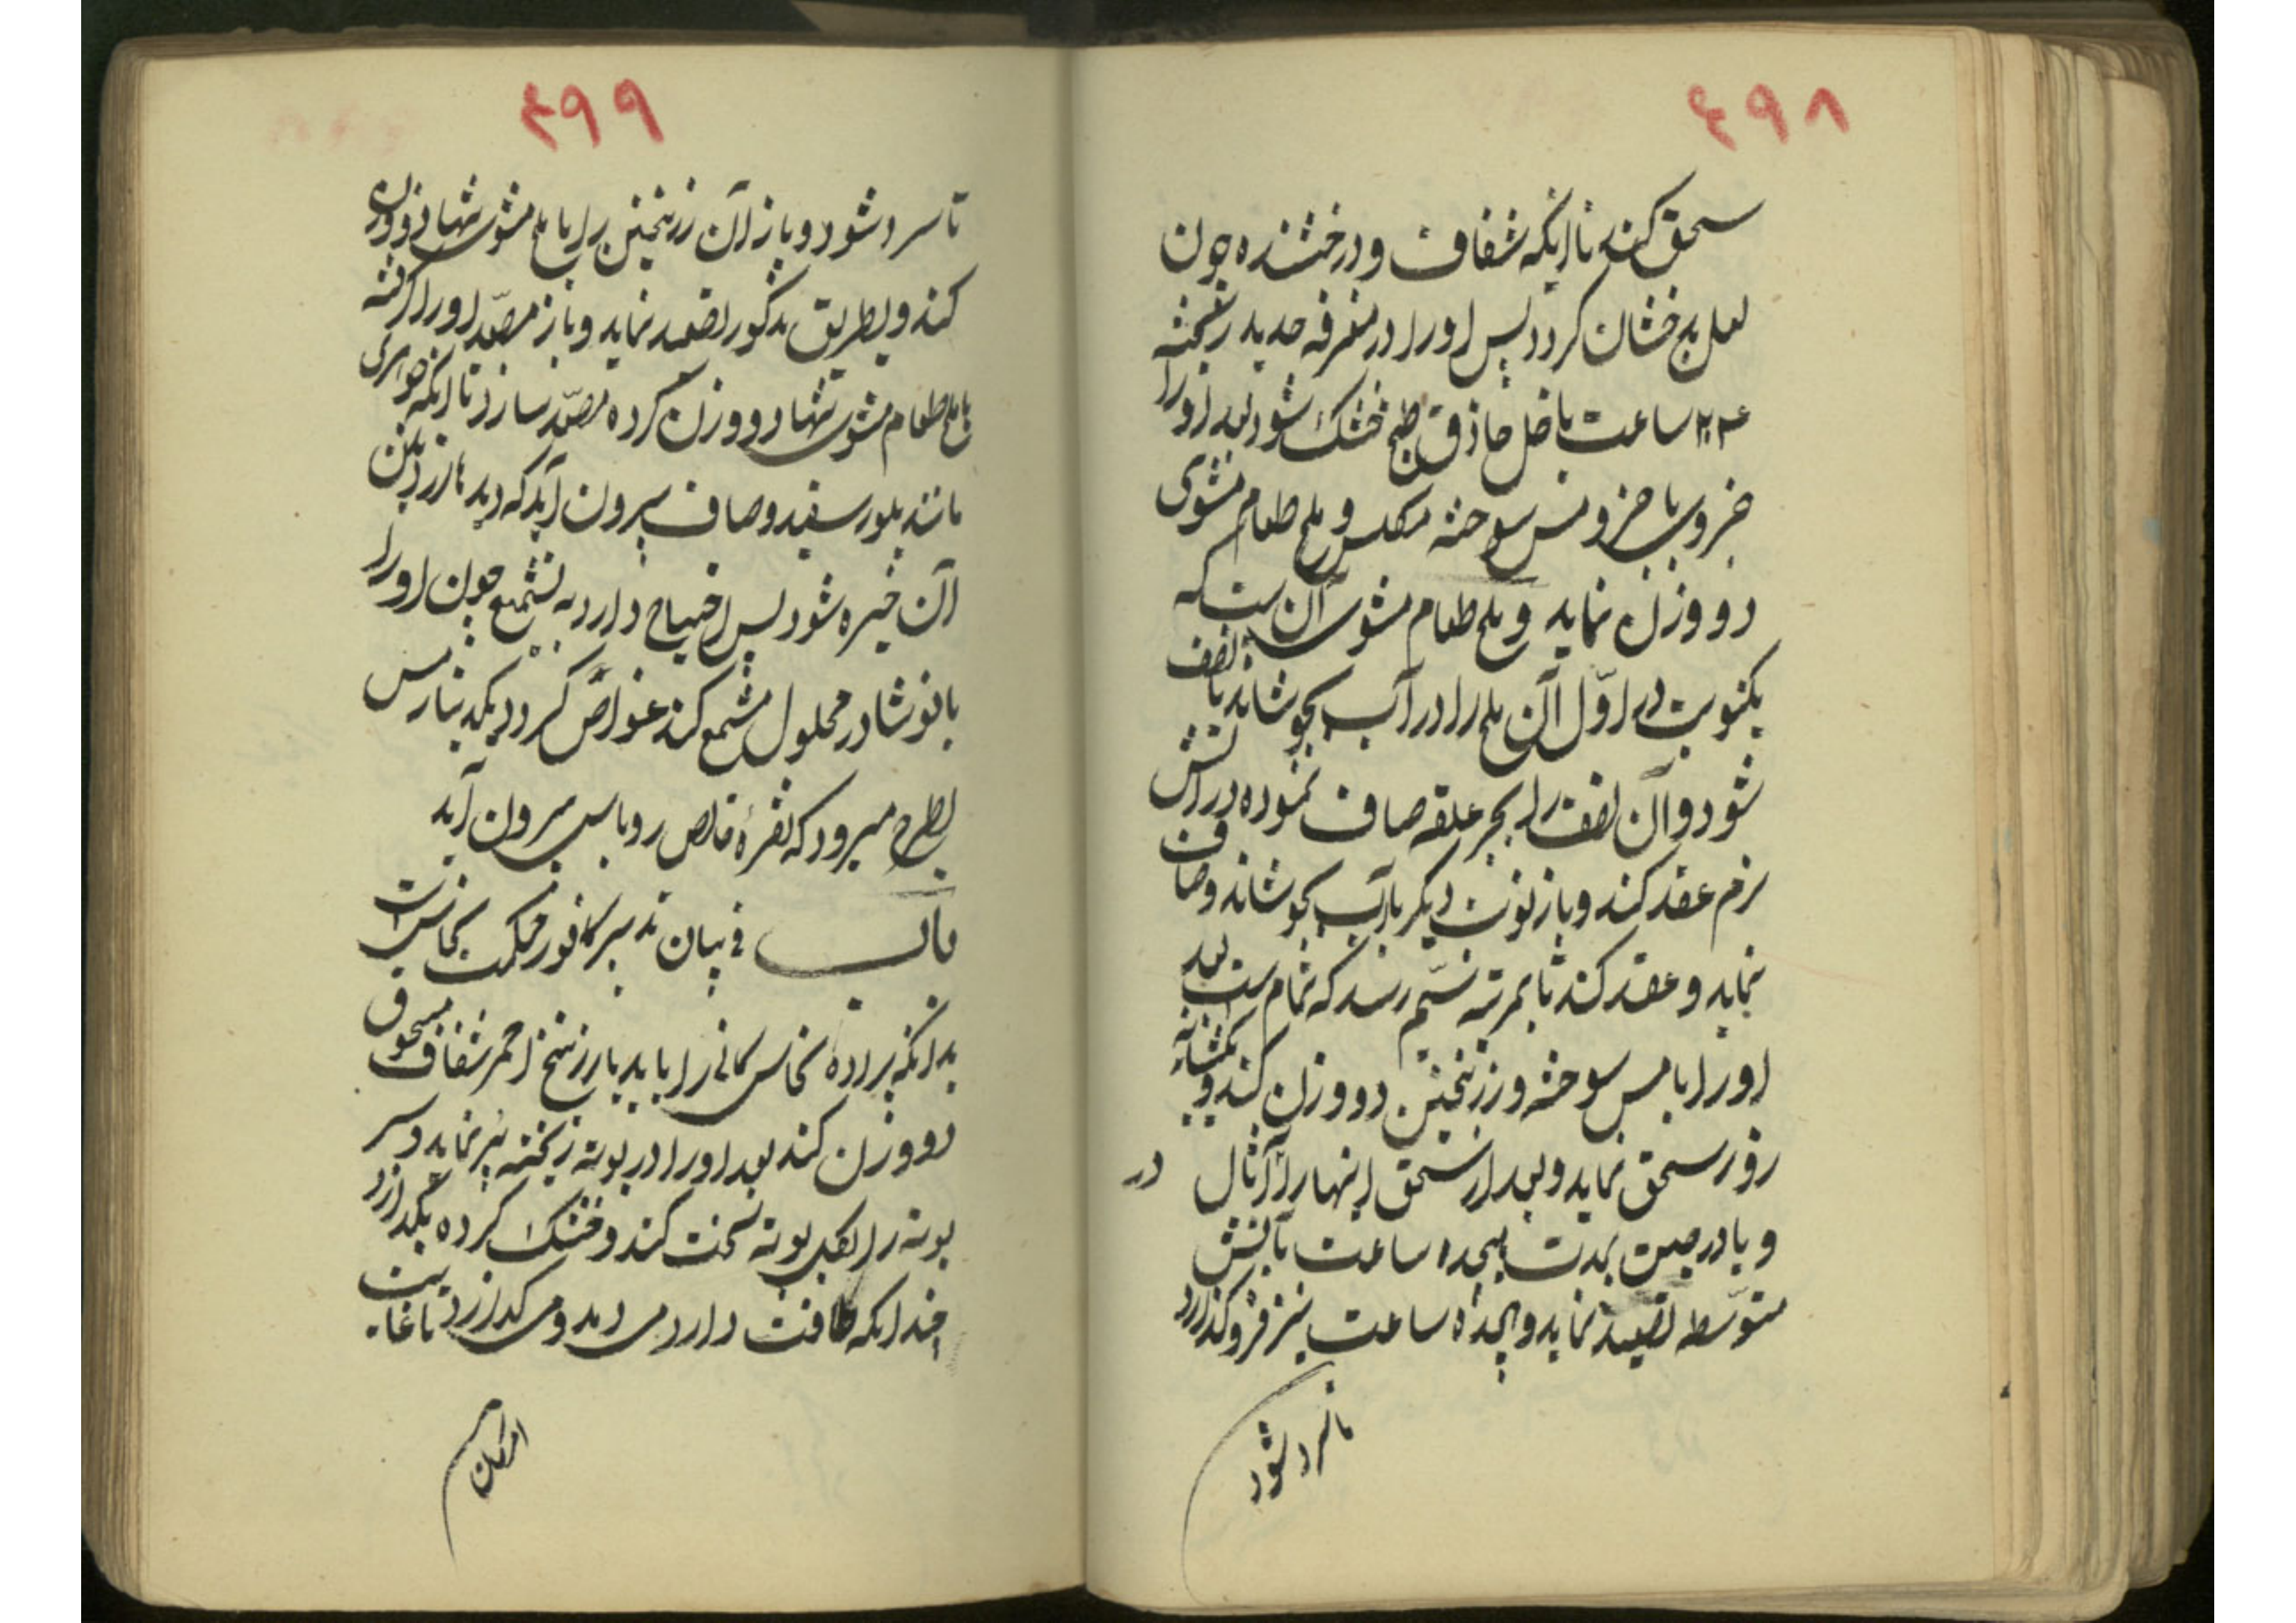 ۴۹۸
سحق کند تا آنکه شفاف و درخشنده چون
لعل بدخشان کردد پس اورا در مغرفه حدید ریخته
۲۴ ساعت با خل حاذق طبخ خشک شود بعد اورا
جزوی با جزو مس سوخته مکلس و ملح طعام مشوی
دو وزن نماید و ملح طعام مشوی آن است که
یکنوبت در اوّل آن ملح را در آب بجوشاند تا نصف
شود و آن نصف را بجر علقه صاف نموده در آتش
نرم عقد کند و باز نوبت دیکر بآب بجوشاند و صاف
نماید و عقد کند تا بمرتبه نهم رسد که تمام است بعد
اورا با مس سوخته و زرنیخین دو وزن کند و یکشبانه
روز سحق نماید و بعد از سحق اینها را در آثال
و یا در صینی بمدت هیجده ساعت بآتش
متوسّطه تصعید نماید و هیجده ساعت نیز فرو کذارد
تا سرد شود
۴۹۹
تا سرد شود و باز آن زرنیخین را با ملح مشوی تنها دو وزن
کند و بطریق مذکور تصعید نماید و باز مصعّد اورا کرفته
با ملح طعام مشوی تنها دو وزن کرده مصعّد سازد تا آنکه جوهری
مانند بلور سفید و صاف بیرون آید که دیدها از دیدن
آن خیره شود پس احتیاج دارد به تشمیع چون اورا
با نوشادر محلول مشمع کند غواصّ کردد یکدینارش
بطرح میرود که نقرهٔ خالص روباس بیرون آید
باب فی بیان تدبیر کافور حکمت نحاس است
بدانکه براده نحاس کانی را باید با زرنیخ احمر شفاف مسحوق
دو وزن کند بعد اورا در بوته ریخته پر نماید و سر
بوته را بکل بوته سخت کند و خشک کرده بکدازد
چندانکه طاقت دارد می دمد و می کدازد تا غایت
امکان